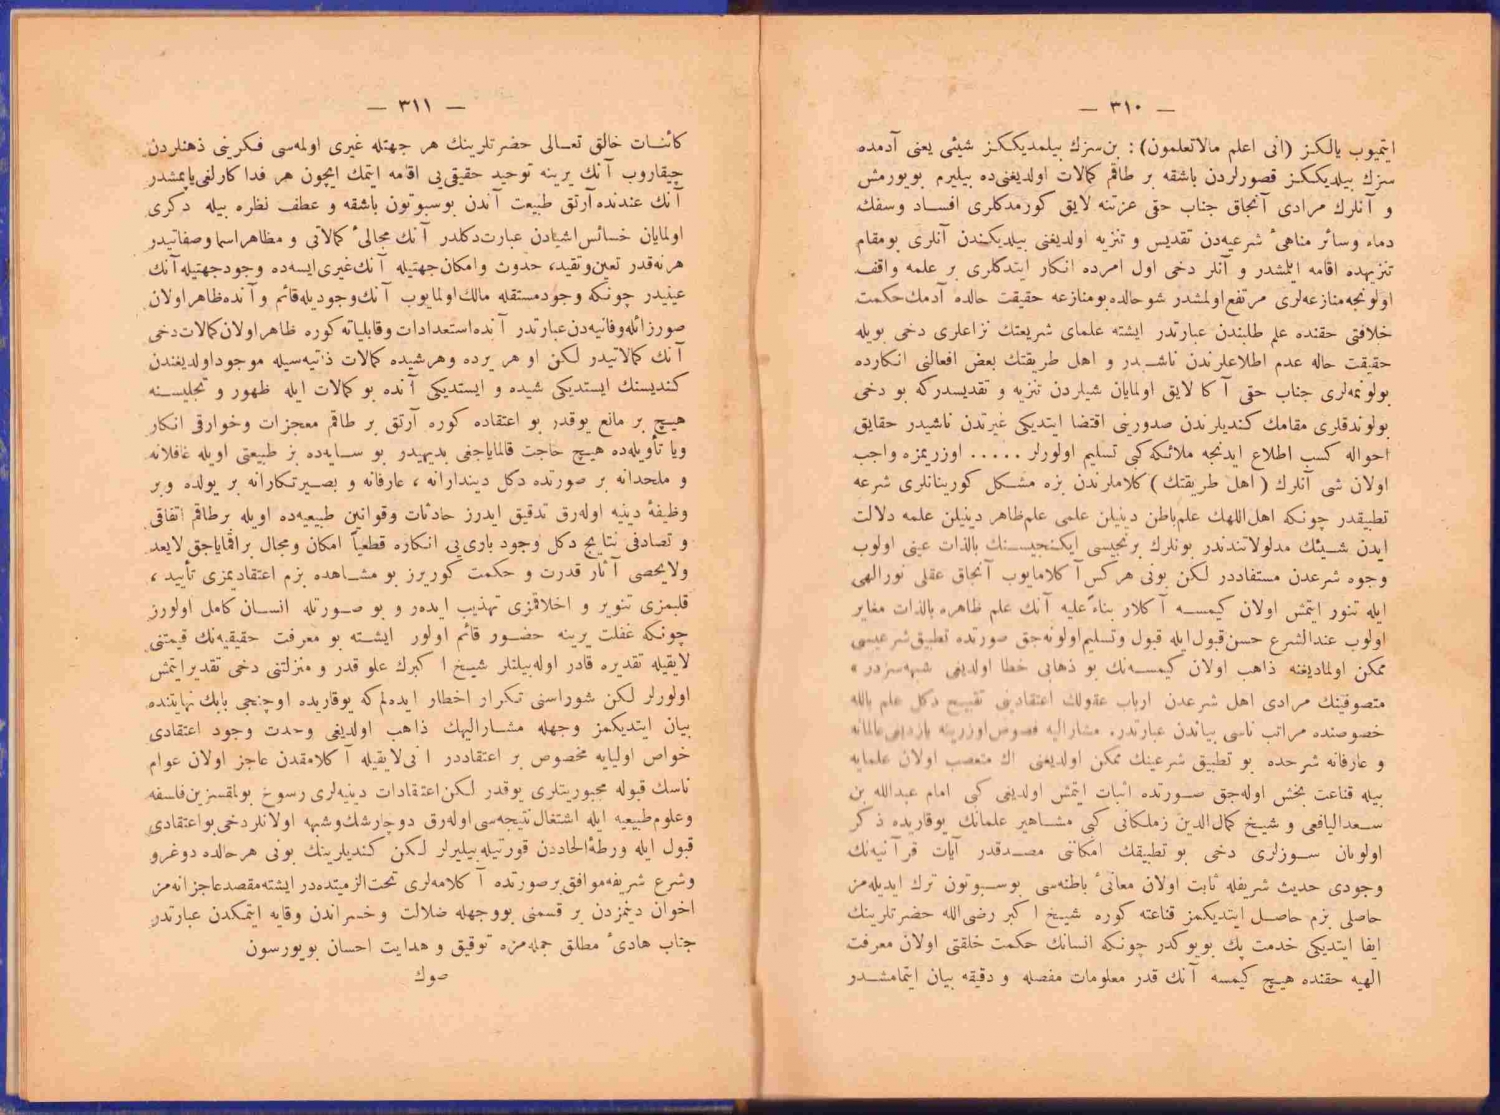 — ٣١٠ —
ايتميوب يالكز (انى اعلم مالاتعلمون) : بن سزك بيلمديككز شيئى يعنى آدمده
سزك بيلديككز قصورلردن باشقه بر طاقم كمالات اولديغنى ده بيليرم بويورمش
و آنلرك مرادى آنجاق جناب حقى عزتنه لايق كورمدكلرى افساد وسفك
دماء وسائر مناهئ شرعيه دن تقديس و تنزيه اولديغنى بيلديكندن آنلرى بومقام
تنزيهده اقامه ايلمشدر و آنلر دخى اول امرده انكار ايتدكلرى بر علمه واقف
اولونجه منازعه لرى مرتفع اولمشدر شو حالده بومنازعه حقيقت حالده آدمك حكمت
خلافتى حقنده علم طلبندن عبارتدر ايشته علماى شريعتك نزاعلرى دخى بويله
حقيقت حاله عدم اطلاعلرندن ناشيدر و اهل طريقتك بعض افعالنى انكارده
بولونمه لرى جناب حقى آكا لايق اولمايان شيلردن تنزيه و تقديسدركه بو دخى
بولوندقلرى مقامك كنديلرندن صدورينى اقتضا ايتديكى غيرتدن ناشيدر حقايق
احواله كسب اطلاع ايدنجه ملائكه كبى تسليم اولورلر ..... اوزريمزه واجب
اولان شى آنلرك (اهل طريقتك) كلاملرندن بزه مشكل كورينانلرى شرعه
تطبيقدر چونكه اهل اللهك علم باطن دينيلن علمى علم ظاهر دينيلن علمه دلالت
ايدن شيئك مدلولاتندندر بونلرك برنجيسى ايكنجيسنك بالذات عينى اولوب
وجوه شرعدن مستفاددر لكن بونى هركس آكلامايوب آنجاق عقلى نور الهى
ايله تنور ايتمش اولان كيمسه آكلار بناءً عليه آنك علم ظاهره بالذات مغاير
اولوب عندالشرع حسن قبول ايله قبول وتسليم اولونه جق صورتده تطبيق شرعيسى
ممكن اولماديغنه ذاهب اولان كيمسه نك بو ذهابى خطا اولديغى شبهه سزدر »
متصوفينك مرادى اهل شرعدن ارباب عقولك اعتقادينى تقبيح دكل علم بالله
خصوصنده مراتب ناسى بياندن عبارتدر. مشاراليه فصوص اوزرينه يازديغى عالمانه
و عارفانه شرحده بو تطبيق شرعينك ممكن اولديغنى اك متعصب اولان علمايه
بيله قناعت بخش اوله جق صورتده اثبات ايتمش اولديغى كبى امام عبدالله بن
سعداليافعى و شيخ كمال الدين زملكانى كبى مشاهير علمانك يوقاريده ذكر
اولونان سوزلرى دخى بو تطبيقك امكاننى مصدقدر آيات قرآنيه نك
وجودى حديث شريفله ثابت اولان معانئ باطنه سى بوسبوتون ترك ايديله مز
حاصلى بزم حاصل ايتديكمز قناعته كوره شيخ اكبر رضى الله حضرتلرينك
ايفا ايتديكى خدمت پك بويوكدر چونكه انسانك حكمت خلقتى اولان معرفت
الهيه حقنده هيچ كيمسه آنك قدر معلومات مفصله و دقيقه بيان ايتمامشدر
— ٣١١ —
كائنات خالق تعالى حضرتلرينك هر جهتله غيرى اولمه سى فكرينى ذهنلردن
چيقاروب آنك يرينه توحيد حقيقى يى اقامه ايتمك ايچون هر فداكارلغى ياپمشدر
آنك عندنده آرتق طبيعت آندن بوسبوتون باشقه و عطف نظره بيله دكرى
اولمايان خسائس اشيادن عبارت دكلدر آنك مجالئ كمالاتى و مظاهر اسما وصفاتيدر
هر نه قدر تعين وتقيد، حدوث وامكان جهتيله آنك غيرى ايسه ده وجود جهتيله آنك
عينيدر چونكه وجود مستقله مالك اولمايوب آنك وجوديله قائم و آنده ظاهر اولان
صور زائله وفانيه دن عبارتدر آنده استعدادات وقابلياته كوره ظاهر اولان كمالات دخى
آنك كمالاتيدر لكن او هر يرده وهر شيده كمالات ذاتيه سيله موجود اولديغندن
كنديسنك ايستديكى شيده و ايستديكى آنده بو كمالات ايله ظهور و تجليسنه
هيچ بر مانع يوقدر بو اعتقاده كوره آرتق بر طاقم معجزات وخوارقى انكار
ويا تأويله ده هيچ حاجت قالماياجغى بديهيدر بو سايه ده بز طبيعتى اويله غافلانه
و ملحدانه بر صورتده دكل ديندارانه ، عارفانه و بصيرتكارانه بر يولده وبر
وظيفۀ دينيه اوله رق تدقيق ايدرز حادثات وقوانين طبيعيه ده اويله برطاقم اتفاقى
و تصادفى نتايج دكل وجود بارى يى انكاره قطعياً امكان ومجال براقماياجق لايعد
ولايحصى آثار قدرت و حكمت كوريرز بو مشاهده بزم اعتقاديمزى تأييد ،
قلبمزى تنوير و اخلاقمزى تهذيب ايدر و بو صورتله انسان كامل اولورز
چونكه غفلت يرينه حضور قائم اولور ايشته بو معرفت حقيقيه نك قيمتنى
لايقيله تقديره قادر اوله بيلنلر شيخ اكبرك علو قدر و منزلتنى دخى تقدير ايتمش
اولورلر لكن شوراسنى تكرار اخطار ايده لم كه يوقاريده اوچنجى بابك نهايتنده
بيان ايتديكمز وجهله مشاراليهك ذاهب اولديغى وحدت وجود اعتقادى
خواص اوليايه مخصوص بر اعتقاددر انى لايقيله آكلامقدن عاجز اولان عوام
ناسك قبوله مجبوريتلرى يوقدر لكن اعتقادات دينيه لرى رسوخ بولمقسزين فلسفه
وعلوم طبيعيه ايله اشتغال نتيجه سى اوله رق دوچار شك وشبهه اولانلر دخى بو اعتقادى
قبول ايله ورطۀ الحاددن قورتيله بيليرلر لكن كنديلرينك بونى هر حالده دوغرو
وشرع شريفه موافق بر صورتده آكلامه لرى تحت الزميتده در ايشته مقصد عاجزانه مز
اخوان دينمزدن بر قسمنى بووجهله ضلالت وخسراندن وقايه ايتمكدن عبارتدر
جناب هادئ مطلق جمله مزه توفيق و هدايت احسان بويورسون
صوك